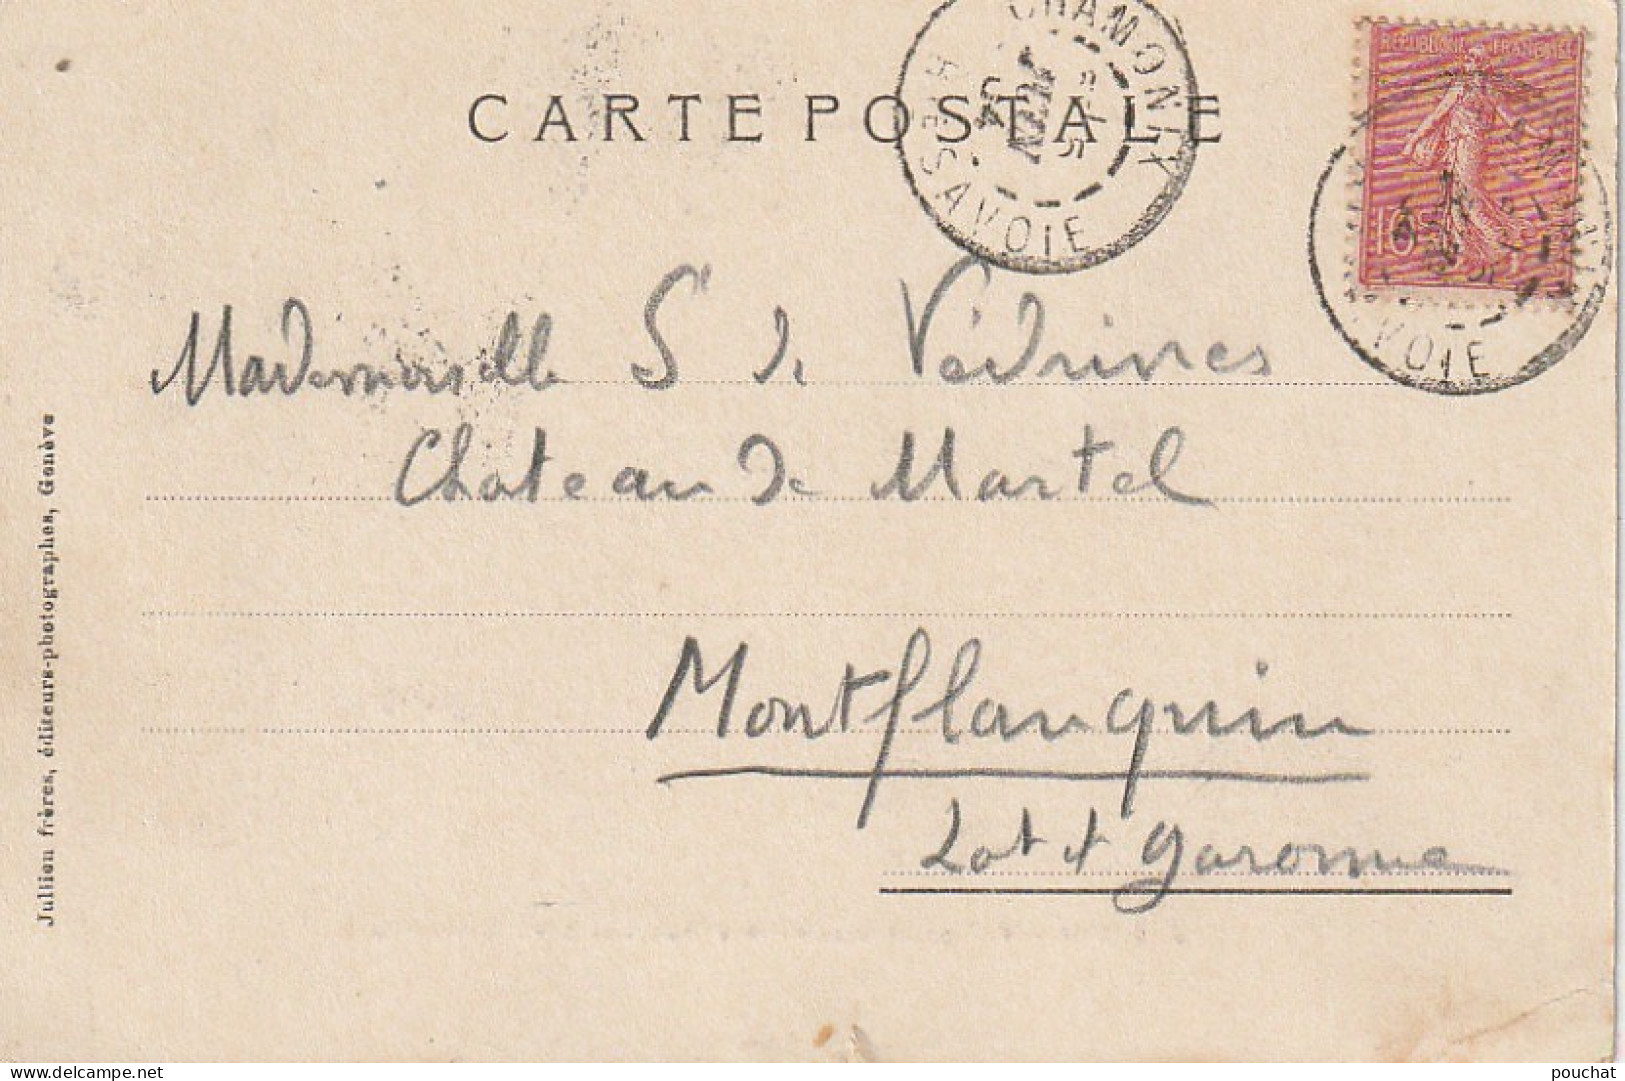 CARTE POSTALE
CHAMONIX
HTE SAVOIE
REPUBLIQUE FRANÇAISE
10c
VOIE
Mademoiselle S de Védrines
Chateau de Martel
Montflanquin
Lot & Garonne
Jullien frères, éditeurs-photographes, Genève
www.delcampe.net
pouchat